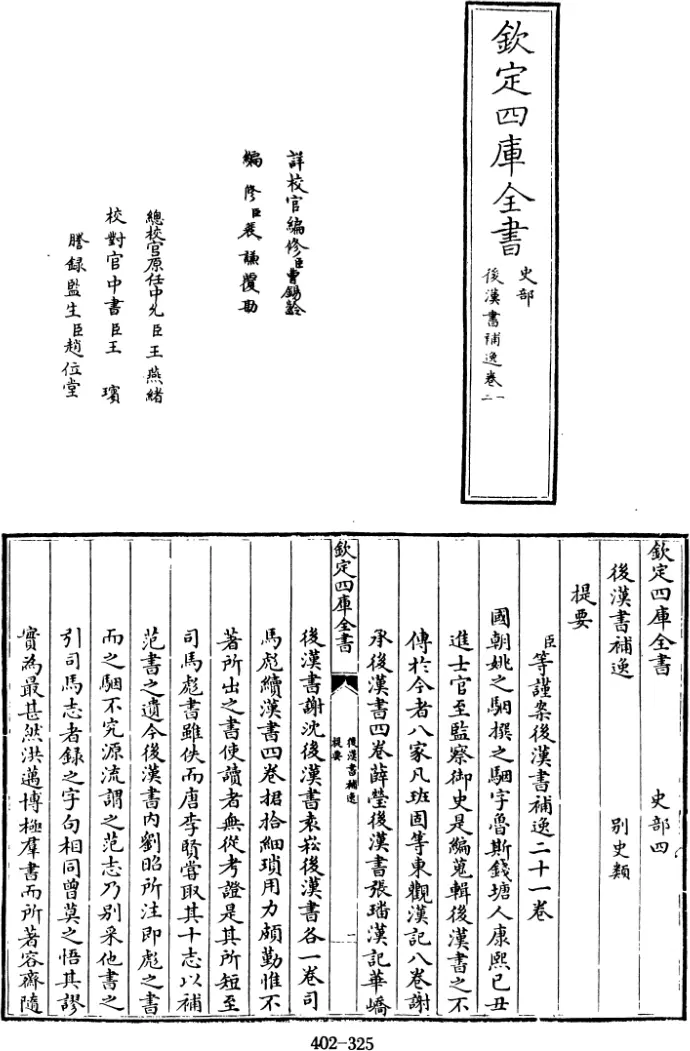 欽定四庫全書
史部
後漢書補逸卷一
二
詳校官編修臣曹錫齡
編修臣裴謙覆勘
總校官原任中允臣王燕緒
校對官中書臣王瑸
謄錄監生臣趙位堂
欽定四庫全書 史部四
後漢書補逸 別史類
提要
臣等謹案後漢書補逸二十一卷
國朝姚之駰撰之駰字魯斯錢塘人康熙己丑
進士官至監察御史是編蒐輯後漢書之不
傳於今者八家凡班固等東觀漢記八卷謝
承後漢書四卷薛瑩後漢書張璠漢記華嶠
欽定四庫全書
後漢書補逸
提要
一
後漢書謝沈後漢書袁崧後漢書各一卷司
馬彪續漢書四卷捃拾細瑣用力頗勤惟不
著所出之書使讀者無從考證是其所短至
司馬彪書雖佚而唐李賢嘗取其十志以補
范書之遺今後漢書內劉昭所注即彪之書
而之駰不究源流謂之范志乃別采他書之
引司馬志者錄之字句相同曾莫之悟其謬
實為最甚然洪邁博極羣書而所著容齋隨
402-325